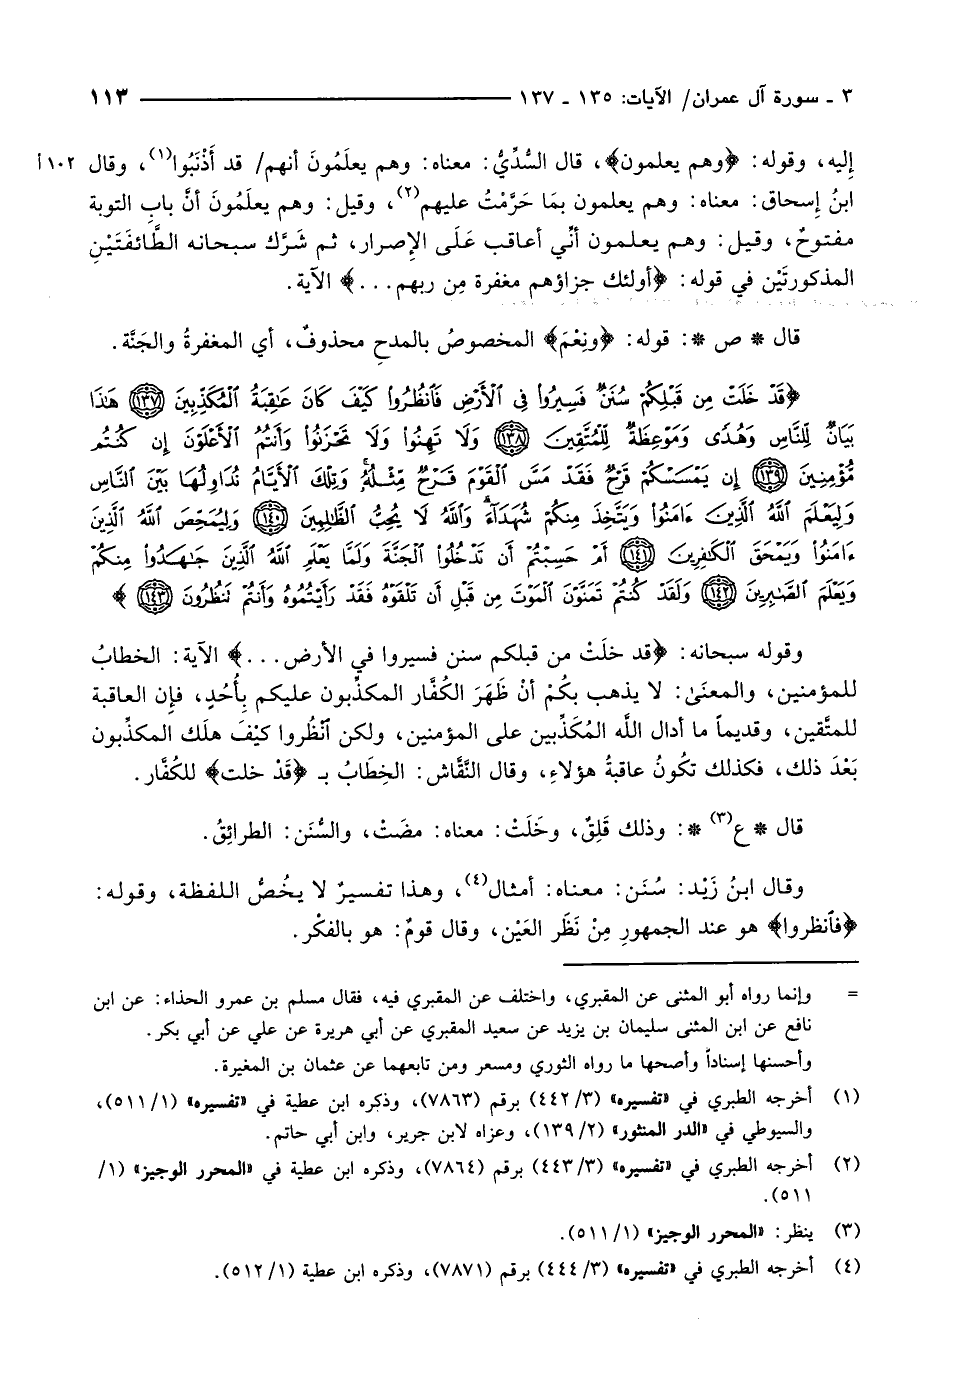 ٣ ـ سورة آل عمران/ الآيات: ١٣٥ ـ ١٣٧ ١١٣
إليه، وقوله: ﴿وهم يعلمون﴾، قال السُّدِّيُّ: معناه: وهم يعلَمُونَ أنهم/ قد أَذْنَبُوا(١)، وقال ١٠٢ أ
ابنُ إسحاق: معناه: وهم يعلمون بمَا حَرَّمْتُ عليهم(٢)، وقيل: وهم يعلَمُونَ أنَّ باب التوبة
مفتوحٌ، وقيل: وهم يعلمون أنِّي أعاقب عَلَى الإصرار، ثم شَرَّك سبحانه الطَّائفَتَيْنِ
المذكورتَيْن في قوله: ﴿أولئك جزاؤهم مغفرة مِن ربهم...﴾ الآية.
قال * ص *: قوله: ﴿ونِعْمَ﴾ المخصوصُ بالمدحِ محذوفٌ، أي المغفرةُ والجَنَّة.
﴿قَدْ خَلَتْ مِن قَبْلِكُمْ سُنَنٌ فَسِيرُوا۟ فِى ٱلْأَرْضِ فَٱنظُرُوا۟ كَيْفَ كَانَ عَـٰقِبَةُ ٱلْمُكَذِّبِينَ ١٣٧ هَـٰذَا
بَيَانٌ لِّلنَّاسِ وَهُدًى وَمَوْعِظَةٌ لِّلْمُتَّقِينَ ١٣٨ وَلَا تَهِنُوا۟ وَلَا تَحْزَنُوا۟ وَأَنتُمُ ٱلْأَعْلَوْنَ إِن كُنتُم
مُّؤْمِنِينَ ١٣٩ إِن يَمْسَسْكُمْ قَرْحٌ فَقَدْ مَسَّ ٱلْقَوْمَ قَرْحٌ مِّثْلُهُۥ وَتِلْكَ ٱلْأَيَّامُ نُدَاوِلُهَا بَيْنَ ٱلنَّاسِ
وَلِيَعْلَمَ ٱللَّهُ ٱلَّذِينَ ءَامَنُوا۟ وَيَتَّخِذَ مِنكُمْ شُهَدَآءَ وَٱللَّهُ لَا يُحِبُّ ٱلظَّـٰلِمِينَ ١٤٠ وَلِيُمَحِّصَ ٱللَّهُ ٱلَّذِينَ
ءَامَنُوا۟ وَيَمْحَقَ ٱلْكَـٰفِرِينَ ١٤١ أَمْ حَسِبْتُمْ أَن تَدْخُلُوا۟ ٱلْجَنَّةَ وَلَمَّا يَعْلَمِ ٱللَّهُ ٱلَّذِينَ جَـٰهَدُوا۟ مِنكُمْ
وَيَعْلَمَ ٱلصَّـٰبِرِينَ ١٤٢ وَلَقَدْ كُنتُمْ تَمَنَّوْنَ ٱلْمَوْتَ مِن قَبْلِ أَن تَلْقَوْهُ فَقَدْ رَأَيْتُمُوهُ وَأَنتُمْ تَنظُرُونَ ١٤٣﴾
وقوله سبحانه: ﴿قد خلَتْ من قبلكم سنن فسيروا في الأرض...﴾ الآية: الخطابُ
للمؤمنين، والمعنَىٰ: لا يذهب بكُمْ أنْ ظَهَرَ الكُفَّار المكذِّبون عليكم بِأُحُدٍ، فإن العاقبة
للمتَّقين، وقديماً ما أدال اللَّه المُكَذِّبين على المؤمنين، ولكن ٱنْظُروا كيْفَ هلَك المكذِّبون
بَعْدَ ذلك، فكذلك تكُونُ عاقبةُ هؤلاءِ، وقال النَّقَّاش: الخِطَابُ بـ ﴿قَدْ خلت﴾ للكُفَّار.
قال * ع(٣) *: وذلك قَلِقٌ، وخَلَتْ: معناه: مضَتْ، والسُّنَن: الطرائِقُ.
وقال ابنُ زَيْد: سُنَن: معناه: أمثال(٤)، وهذا تفسيرٌ لا يخُصُّ اللفظة، وقوله:
﴿فٱنظروا﴾ هو عند الجمهورِ مِنْ نَظَر العَيْن، وقال قومٌ: هو بالفكْر.
= وإنما رواه أبو المثنى عن المقبري، واختلف عن المقبري فيه، فقال مسلم بن عمرو الحذاء: عن ابن
نافع عن ابن المثنى سليمان بن يزيد عن سعيد المقبري عن أبي هريرة عن علي عن أبي بكر.
وأحسنها إسناداً وأصحها ما رواه الثوري ومسعر ومن تابعهما عن عثمان بن المغيرة.
(١) أخرجه الطبري في «تفسيره» (٣/ ٤٤٢) برقم (٧٨٦٣)، وذكره ابن عطية في «تفسيره» (١/ ٥١١)،
والسيوطي في «الدر المنثور» (٢/ ١٣٩)، وعزاه لابن جرير، وابن أبي حاتم.
(٢) أخرجه الطبري في «تفسيره» (٣/ ٤٤٣) برقم (٧٨٦٤)، وذكره ابن عطية في «المحرر الوجيز» (١/
٥١١).
(٣) ينظر: «المحرر الوجيز» (١/ ٥١١).
(٤) أخرجه الطبري في «تفسيره» (٣/ ٤٤٤) برقم (٧٨٧١)، وذكره ابن عطية (١/ ٥١٢).